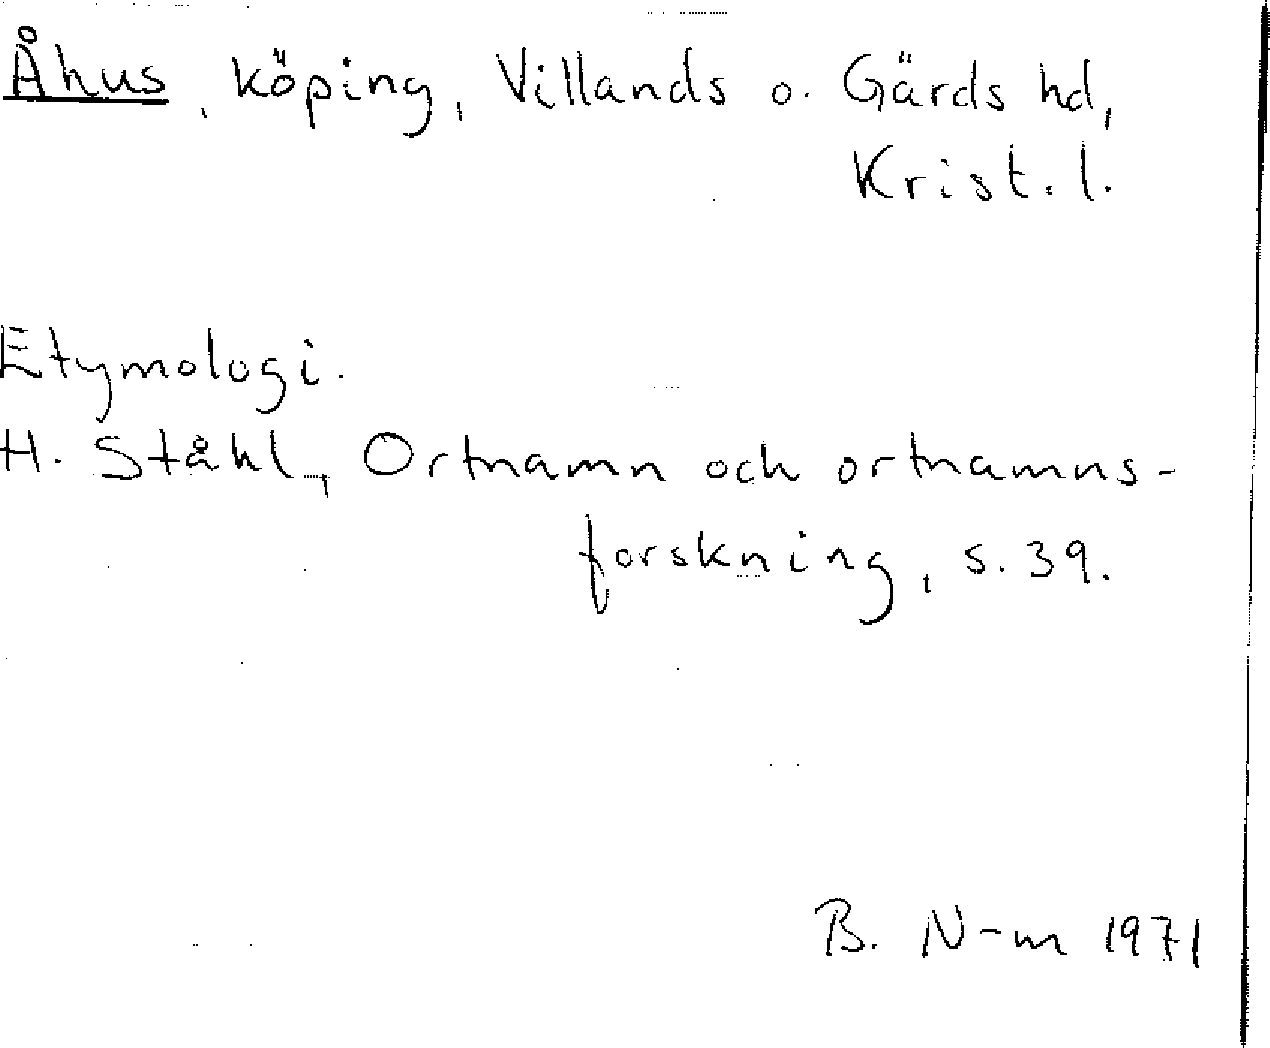 Åhus, köping, Villands o. Gärds hd,
Krist. l.
Etymologi.
H. Ståhl, Ortnamn och ortnamns-
forskning, s. 39.
B. N-m 1971